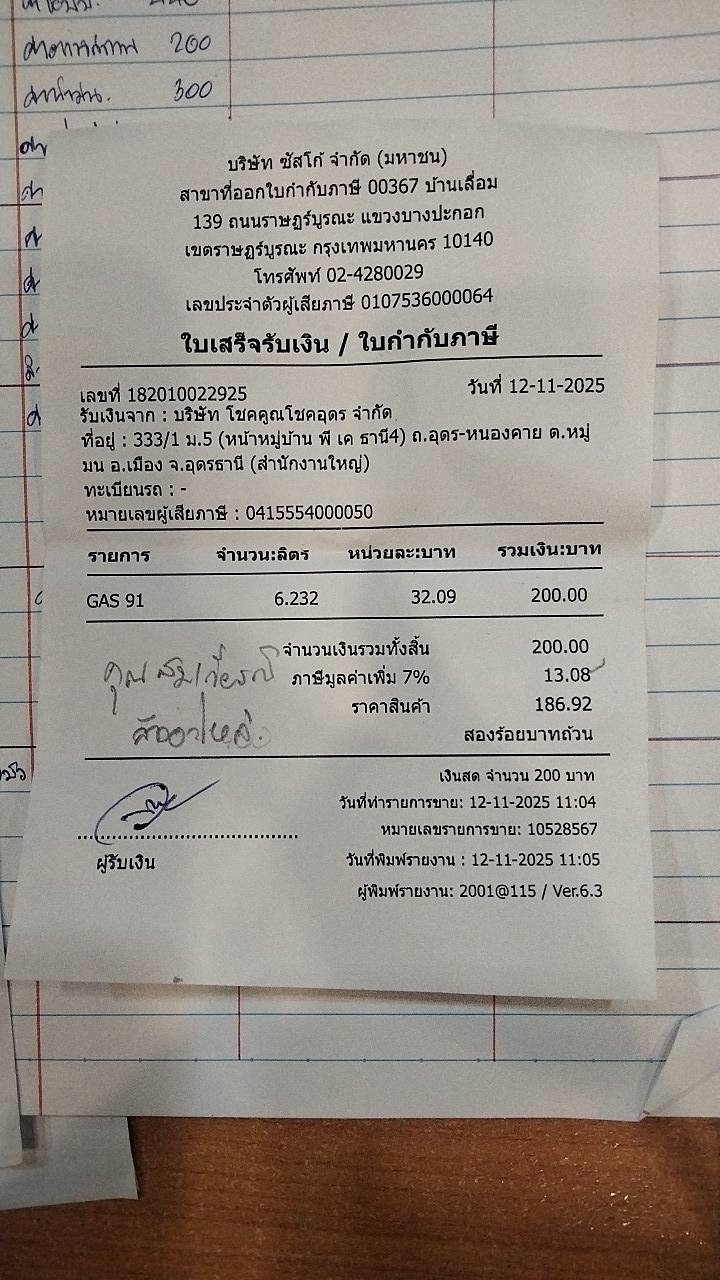 200
300
บริษัท ซัสโก้ จำกัด (มหาชน)
สาขาที่ออกใบกำกับภาษี 00367 บ้านเลื่อม
139 ถนนราษฎร์บูรณะ แขวงบางปะกอก
เขตราษฎร์บูรณะ กรุงเทพมหานคร 10140
โทรศัพท์ 02-4280029
เลขประจำตัวผู้เสียภาษี 0107536000064
ใบเสร็จรับเงิน / ใบกำกับภาษี
เลขที่ 182010022925 วันที่ 12-11-2025
รับเงินจาก : บริษัท โชคคูณโชคอุดร จำกัด
ที่อยู่ : 333/1 ม.5 (หน้าหมู่บ้าน พี เค ธานี4) ถ.อุดร-หนองคาย ต.หมู
มน อ.เมือง จ.อุดรธานี (สำนักงานใหญ่)
ทะเบียนรถ : -
หมายเลขผู้เสียภาษี : 0415554000050
รายการ จำนวน:ลิตร หน่วยละ:บาท รวมเงิน:บาท
GAS 91 6.232 32.09 200.00
จำนวนเงินรวมทั้งสิ้น 200.00
คุณ
ภาษีมูลค่าเพิ่ม 7% 13.08
ราคาสินค้า 186.92
สองร้อยบาทถ้วน
เงินสด จำนวน 200 บาท
วันที่ทำรายการขาย: 12-11-2025 11:04
หมายเลขรายการขาย: 10528567
ผู้รับเงิน วันที่พิมพ์รายงาน : 12-11-2025 11:05
ผู้พิมพ์รายงาน: 2001@115 / Ver.6.3